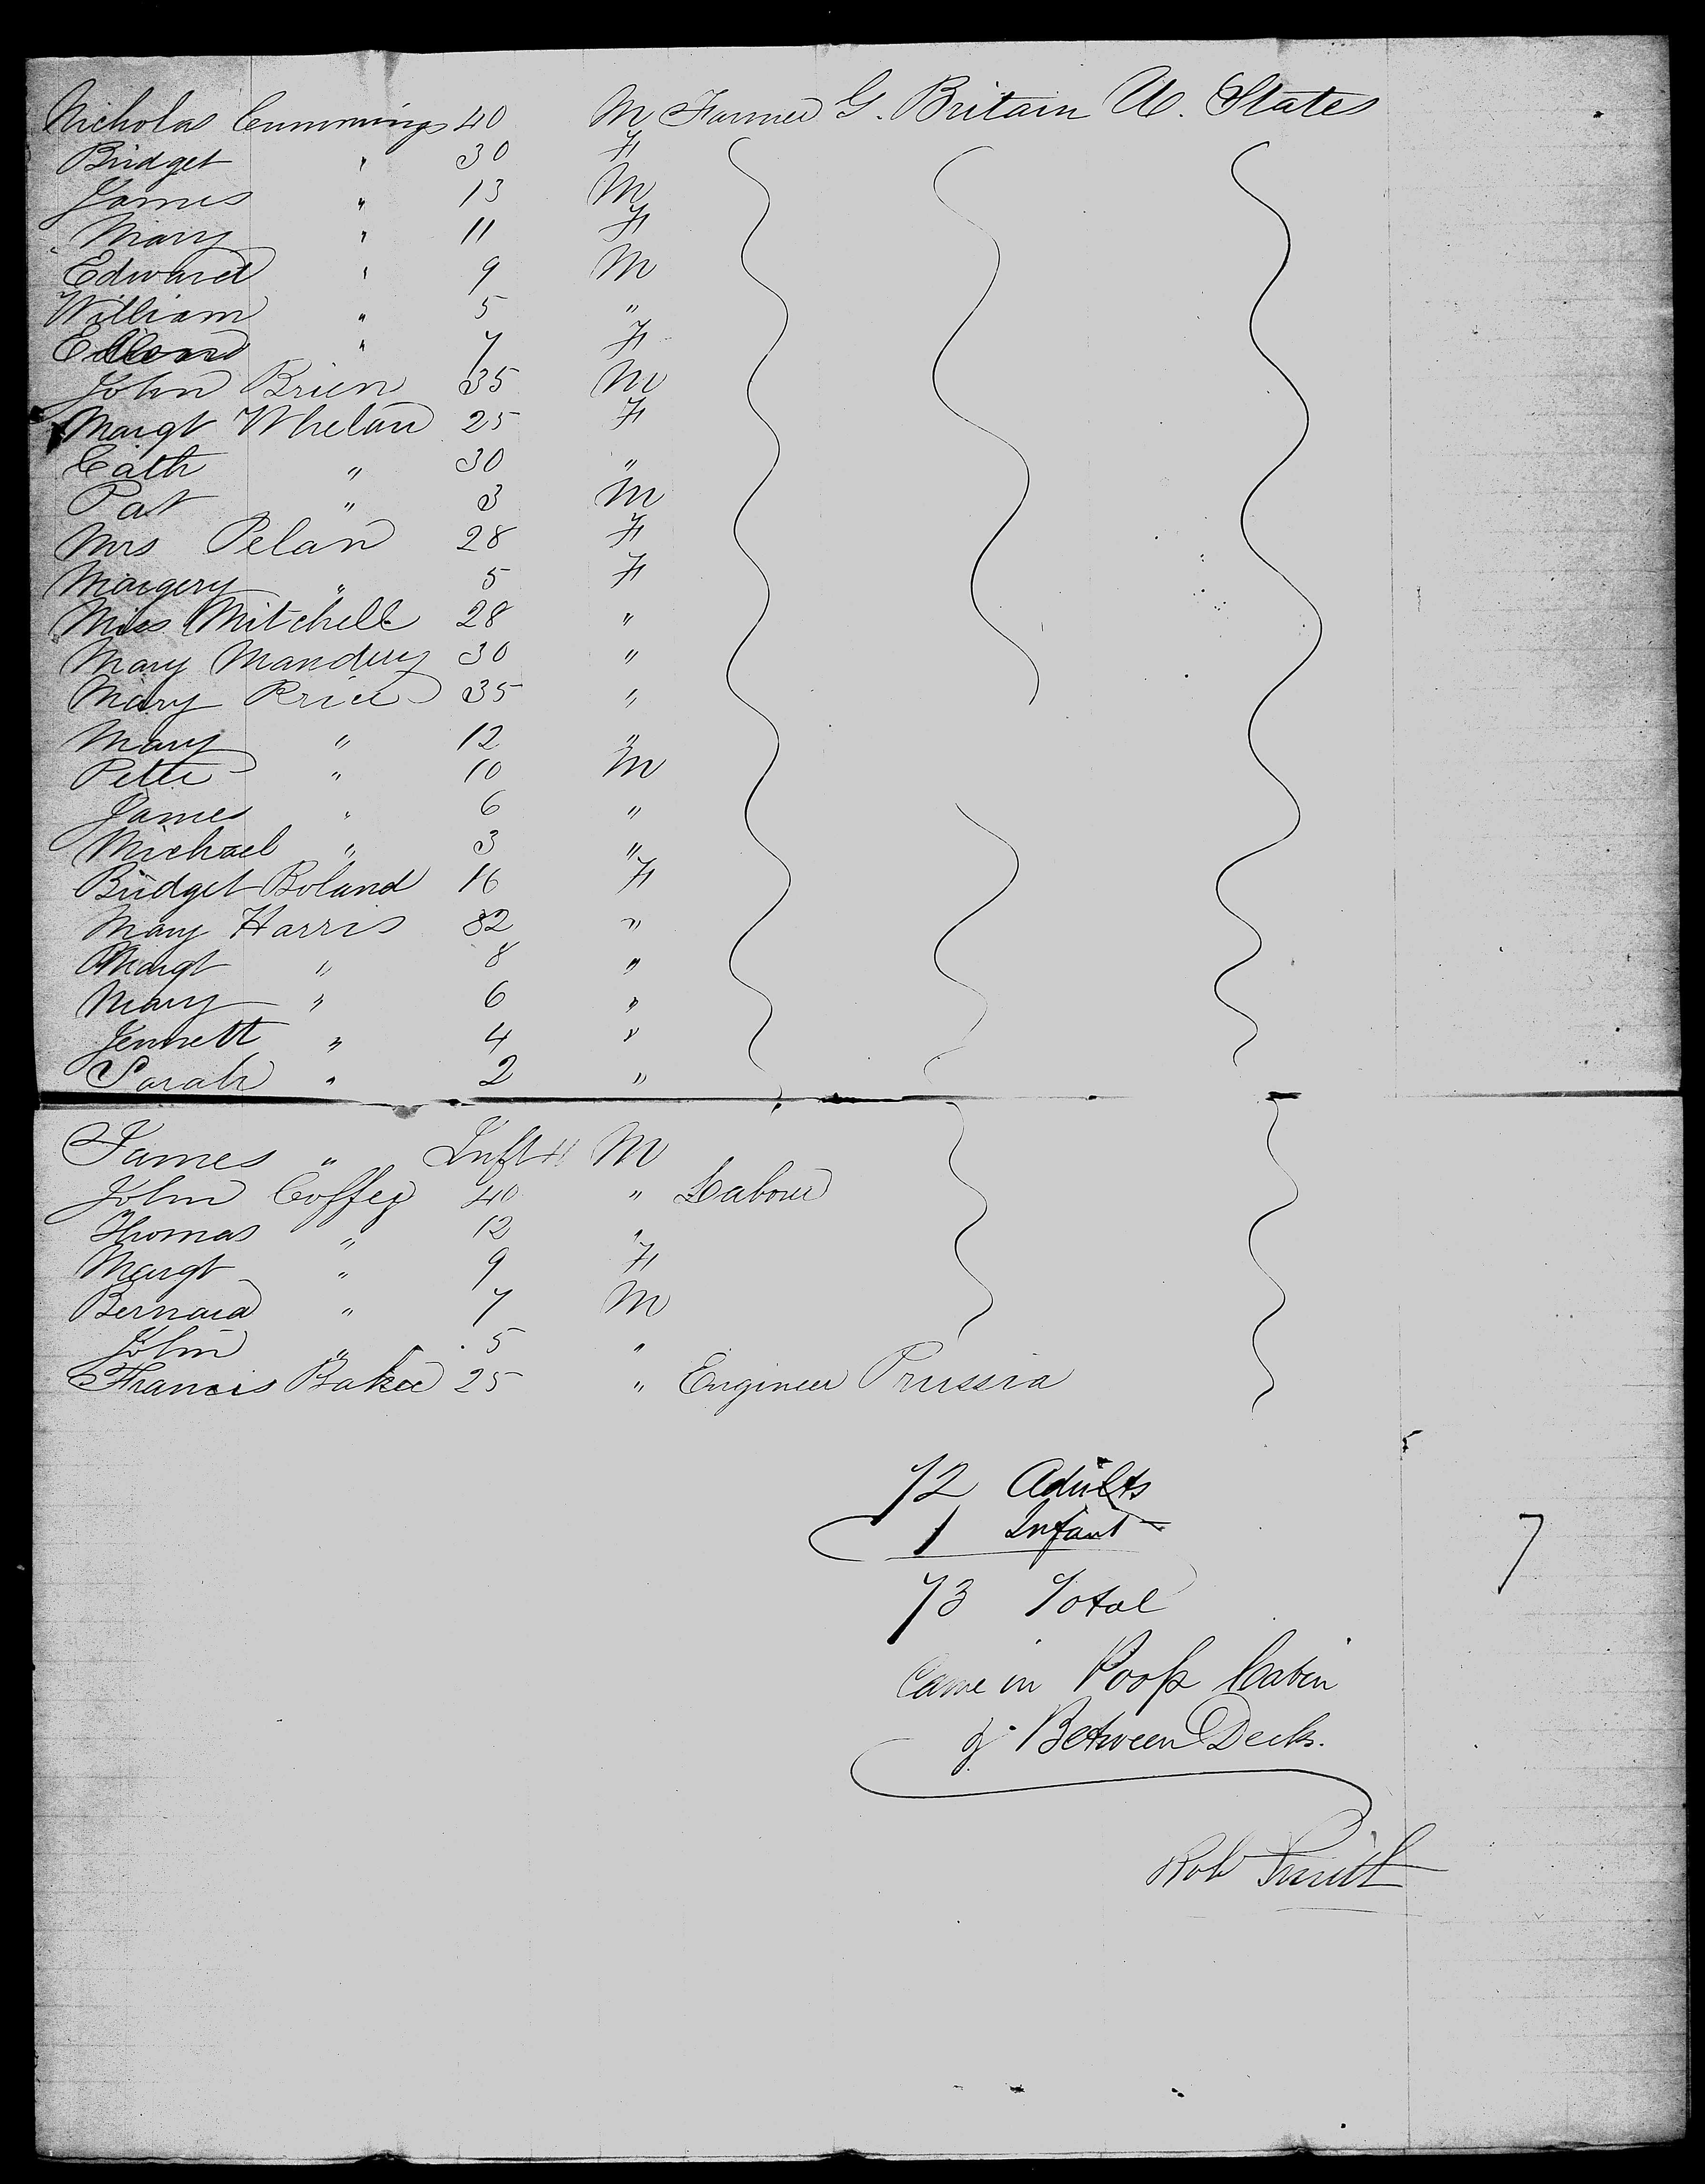 Nicholas Cummings 40 M Farmer G. Britain U. States
Bridget " 30 F
James " 13 M
Mary " 11 F
Edward " 9 M
William " 5 "
" 7 F
John Brien 35 M
Margt Whelan 25 F
Cath " 30 "
Pat " 3 M
Mrs Pelan 28 F
Margery " 5 F
Miss Mitchell 28 "
Mary 30 "
Mary Price 35 "
Mary " 12 "
Peter " 10 M
James " 6 "
Michael " 3 "
Bridget Boland 16 F
Mary Harris 32 "
Margt " 8 "
Mary " 6 "
Jennett " 4 "
Sarah " 2 "
James " Inft M
John Coffey 40 " Labour
Thomas " 12 "
Margt " 9 F
Bernard " 7 M
John " 5 "
Francis Baker 25 " Engineer Prussia
72 Adults
1 Infant
73 Total
7
Came in Poop Cabin
& Between Decks.
Rob Smith